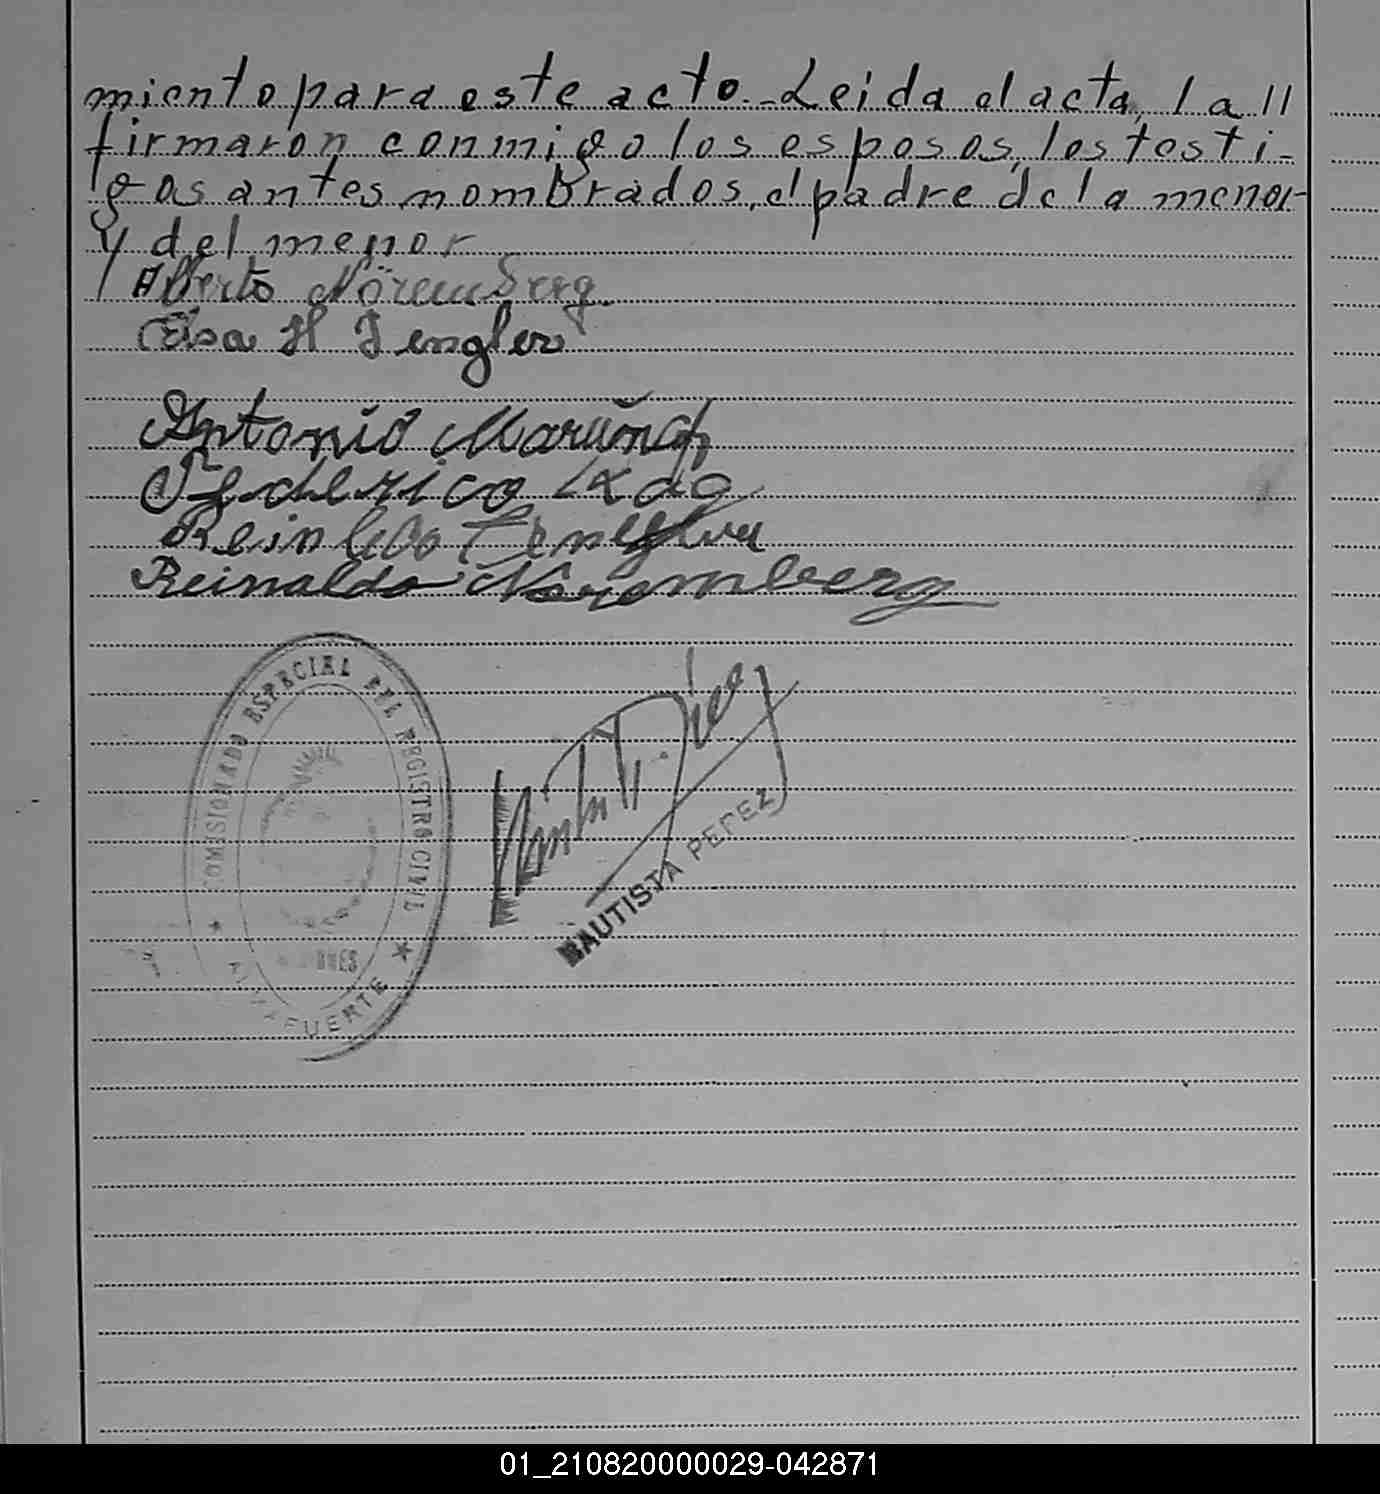 miento para este acto.-Leida el acta, la //
firmaron conmigo los esposos, los testi-
gos antes nombrados, el padre de la menor
y del menor
Alberto Nöremberg.
Elsa H Fengler
Antonio
Federico
Reinaldo Nöremberg
COMISIONADO ESPECIAL DEL REGISTRO CIVIL
ALMAFUERTE
BAUTISTA PEREZ
01_210820000029-042871